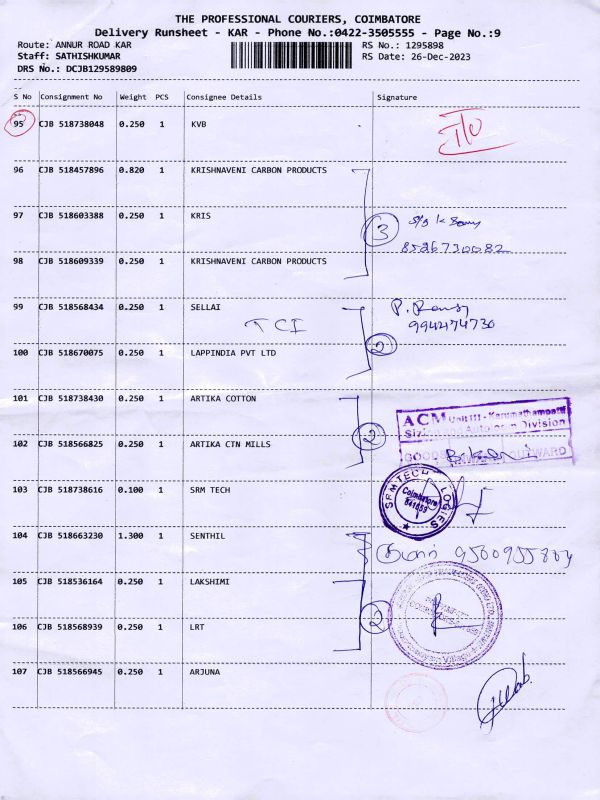 THE PROFESSIONAL COURIERS, COIMBATORE
Delivery Runsheet - KAR - Phone No.:0422-3505555 - Page No.:9
Route: ANNUR ROAD KAR RS No.: 1295898
Staff: SATHISHKUMAR RS Date: 26-Dec-2023
DRS No.: DCJB129589809
S No Consignment No Weight PCS Consignee Details Signature
95 CJB 518738048 0.250 1 KVB
96 CJB 518457896 0.820 1 KRISHNAVENI CARBON PRODUCTS
97 CJB 518603388 0.250 1 KRIS
3
8526730082
98 CJB 518609339 0.250 1 KRISHNAVENI CARBON PRODUCTS
99 CJB 518568434 0.250 1 SELLAI
TCI
100 CJB 518670075 0.250 1 LAPPINDIA PVT LTD
2
101 CJB 518738430 0.250 1 ARTIKA COTTON
ACM Unit III - Karumathampatti
Sizing and Autoloom Division
102 CJB 518566825 0.250 1 ARTIKA CTN MILLS
2
GOODS OUTWARD
103 CJB 518738616 0.100 1 SRM TECH
SRM TECHNOLOGIES
Coimbatore
641659
104 CJB 518663230 1.300 1 SENTHIL
குமார்
105 CJB 518536164 0.250 1 LAKSHIMI
106 CJB 518568939 0.250 1 LRT
2
107 CJB 518566945 0.250 1 ARJUNA